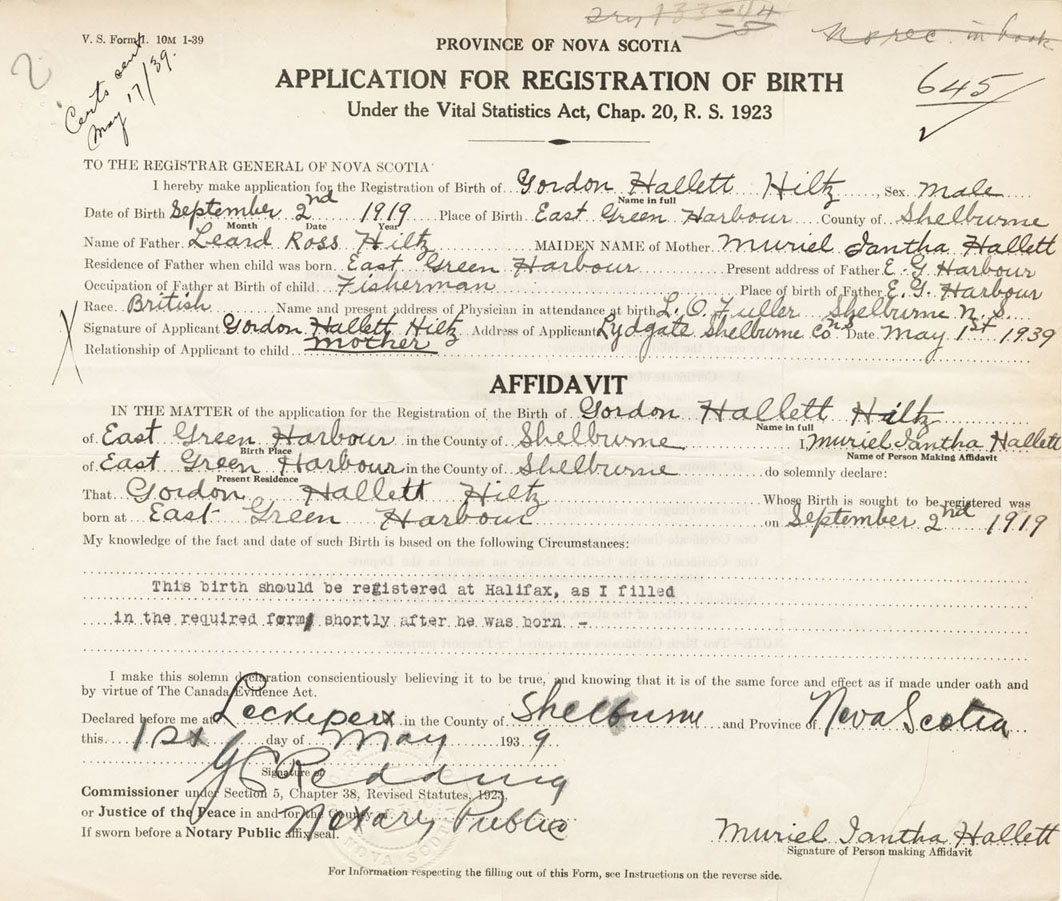 Dry 133-44
-5
No rec. in book
V. S. Form 1. 10M 1-39
2
Certs sent
May 17/39.
645
PROVINCE OF NOVA SCOTIA
APPLICATION FOR REGISTRATION OF BIRTH
Under the Vital Statistics Act, Chap. 20, R. S. 1923
TO THE REGISTRAR GENERAL OF NOVA SCOTIA
I hereby make application for the Registration of Birth of Gordon Hallett Hiltz, Sex male
Name in full
Date of Birth September 2nd 1919 Place of Birth East Green Harbour County of Shelburne
Month Date Year
Name of Father Leard Ross Hiltz MAIDEN NAME of Mother Muriel Iantha Hallett
Residence of Father when child was born East Green Harbour Present address of Father E. G. Harbour
Occupation of Father at Birth of child Fisherman Place of birth of Father E. G. Harbour
Race British Name and present address of Physician in attendance at birth L. O. Fuller Shelburne N. S.
Signature of Applicant Gordon Hallett Hiltz Address of Applicant Lydgate Shelburne Co NS Date May 1st 1939
Relationship of Applicant to child mother
AFFIDAVIT
IN THE MATTER of the application for the Registration of the Birth of Gordon Hallett Hiltz
Name in full
of East Green Harbour in the County of Shelburne I Muriel Iantha Hallett
Birth Place Name of Person Making Affidavit
of East Green Harbour in the County of Shelburne do solemnly declare:
Present Residence
That Gordon Hallett Hiltz Whose Birth is sought to be registered was
born at East Green Harbour on September 2nd 1919
My knowledge of the fact and date of such Birth is based on the following Circumstances:
This birth should be registered at Halifax, as I filled
in the required form shortly after he was born -
I make this solemn declaration conscientiously believing it to be true, and knowing that it is of the same force and effect as if made under oath and
by virtue of The Canada Evidence Act.
Declared before me at Lockeport in the County of Shelburne and Province of Nova Scotia
this 1st day of May 1939
Signature of G C Redding
Commissioner under Section 5, Chapter 38, Revised Statutes, 1923,
or Justice of the Peace in and for the County of
Notary Public
If sworn before a Notary Public affix seal.
NOVA SCOTIA
Muriel Iantha Hallett
Signature of Person making Affidavit
For Information respecting the filling out of this Form, see Instructions on the reverse side.